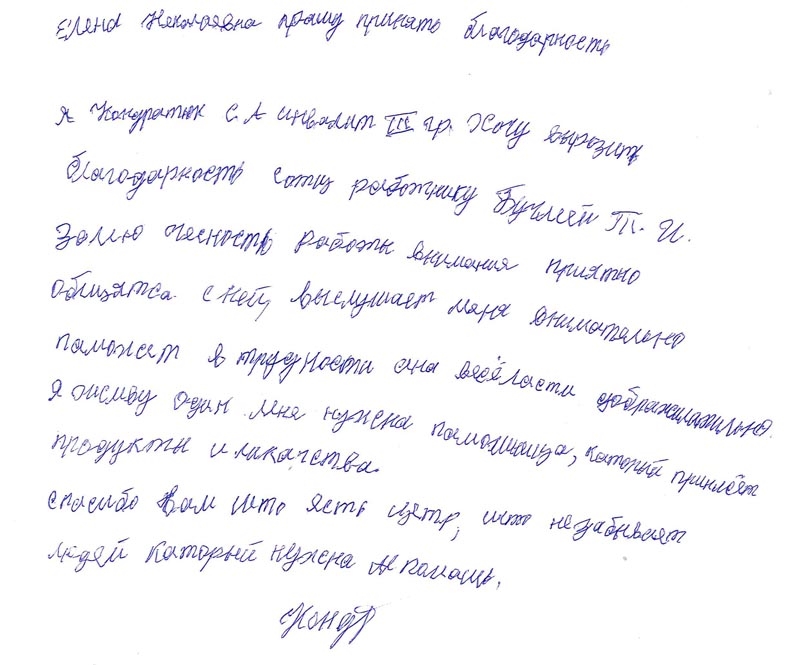 Елена Неколаевна прошу принять благодарность
я Кондратюк С. А инвалит III гр. Хочу вырозить
благодарность соти работнику Бучлей Т. И.
За ию чесность работы внимания приятно
обшятса с ней, выслушает мяня внимательно
паможет в трудности она весёласти доброжилательно.
я живу один мне нужна памошница, каторый принясёт
продукты иликарства.
спасибо вам што ясть центр, што незабывает
людяй каторый нужна помощь.
Кондр